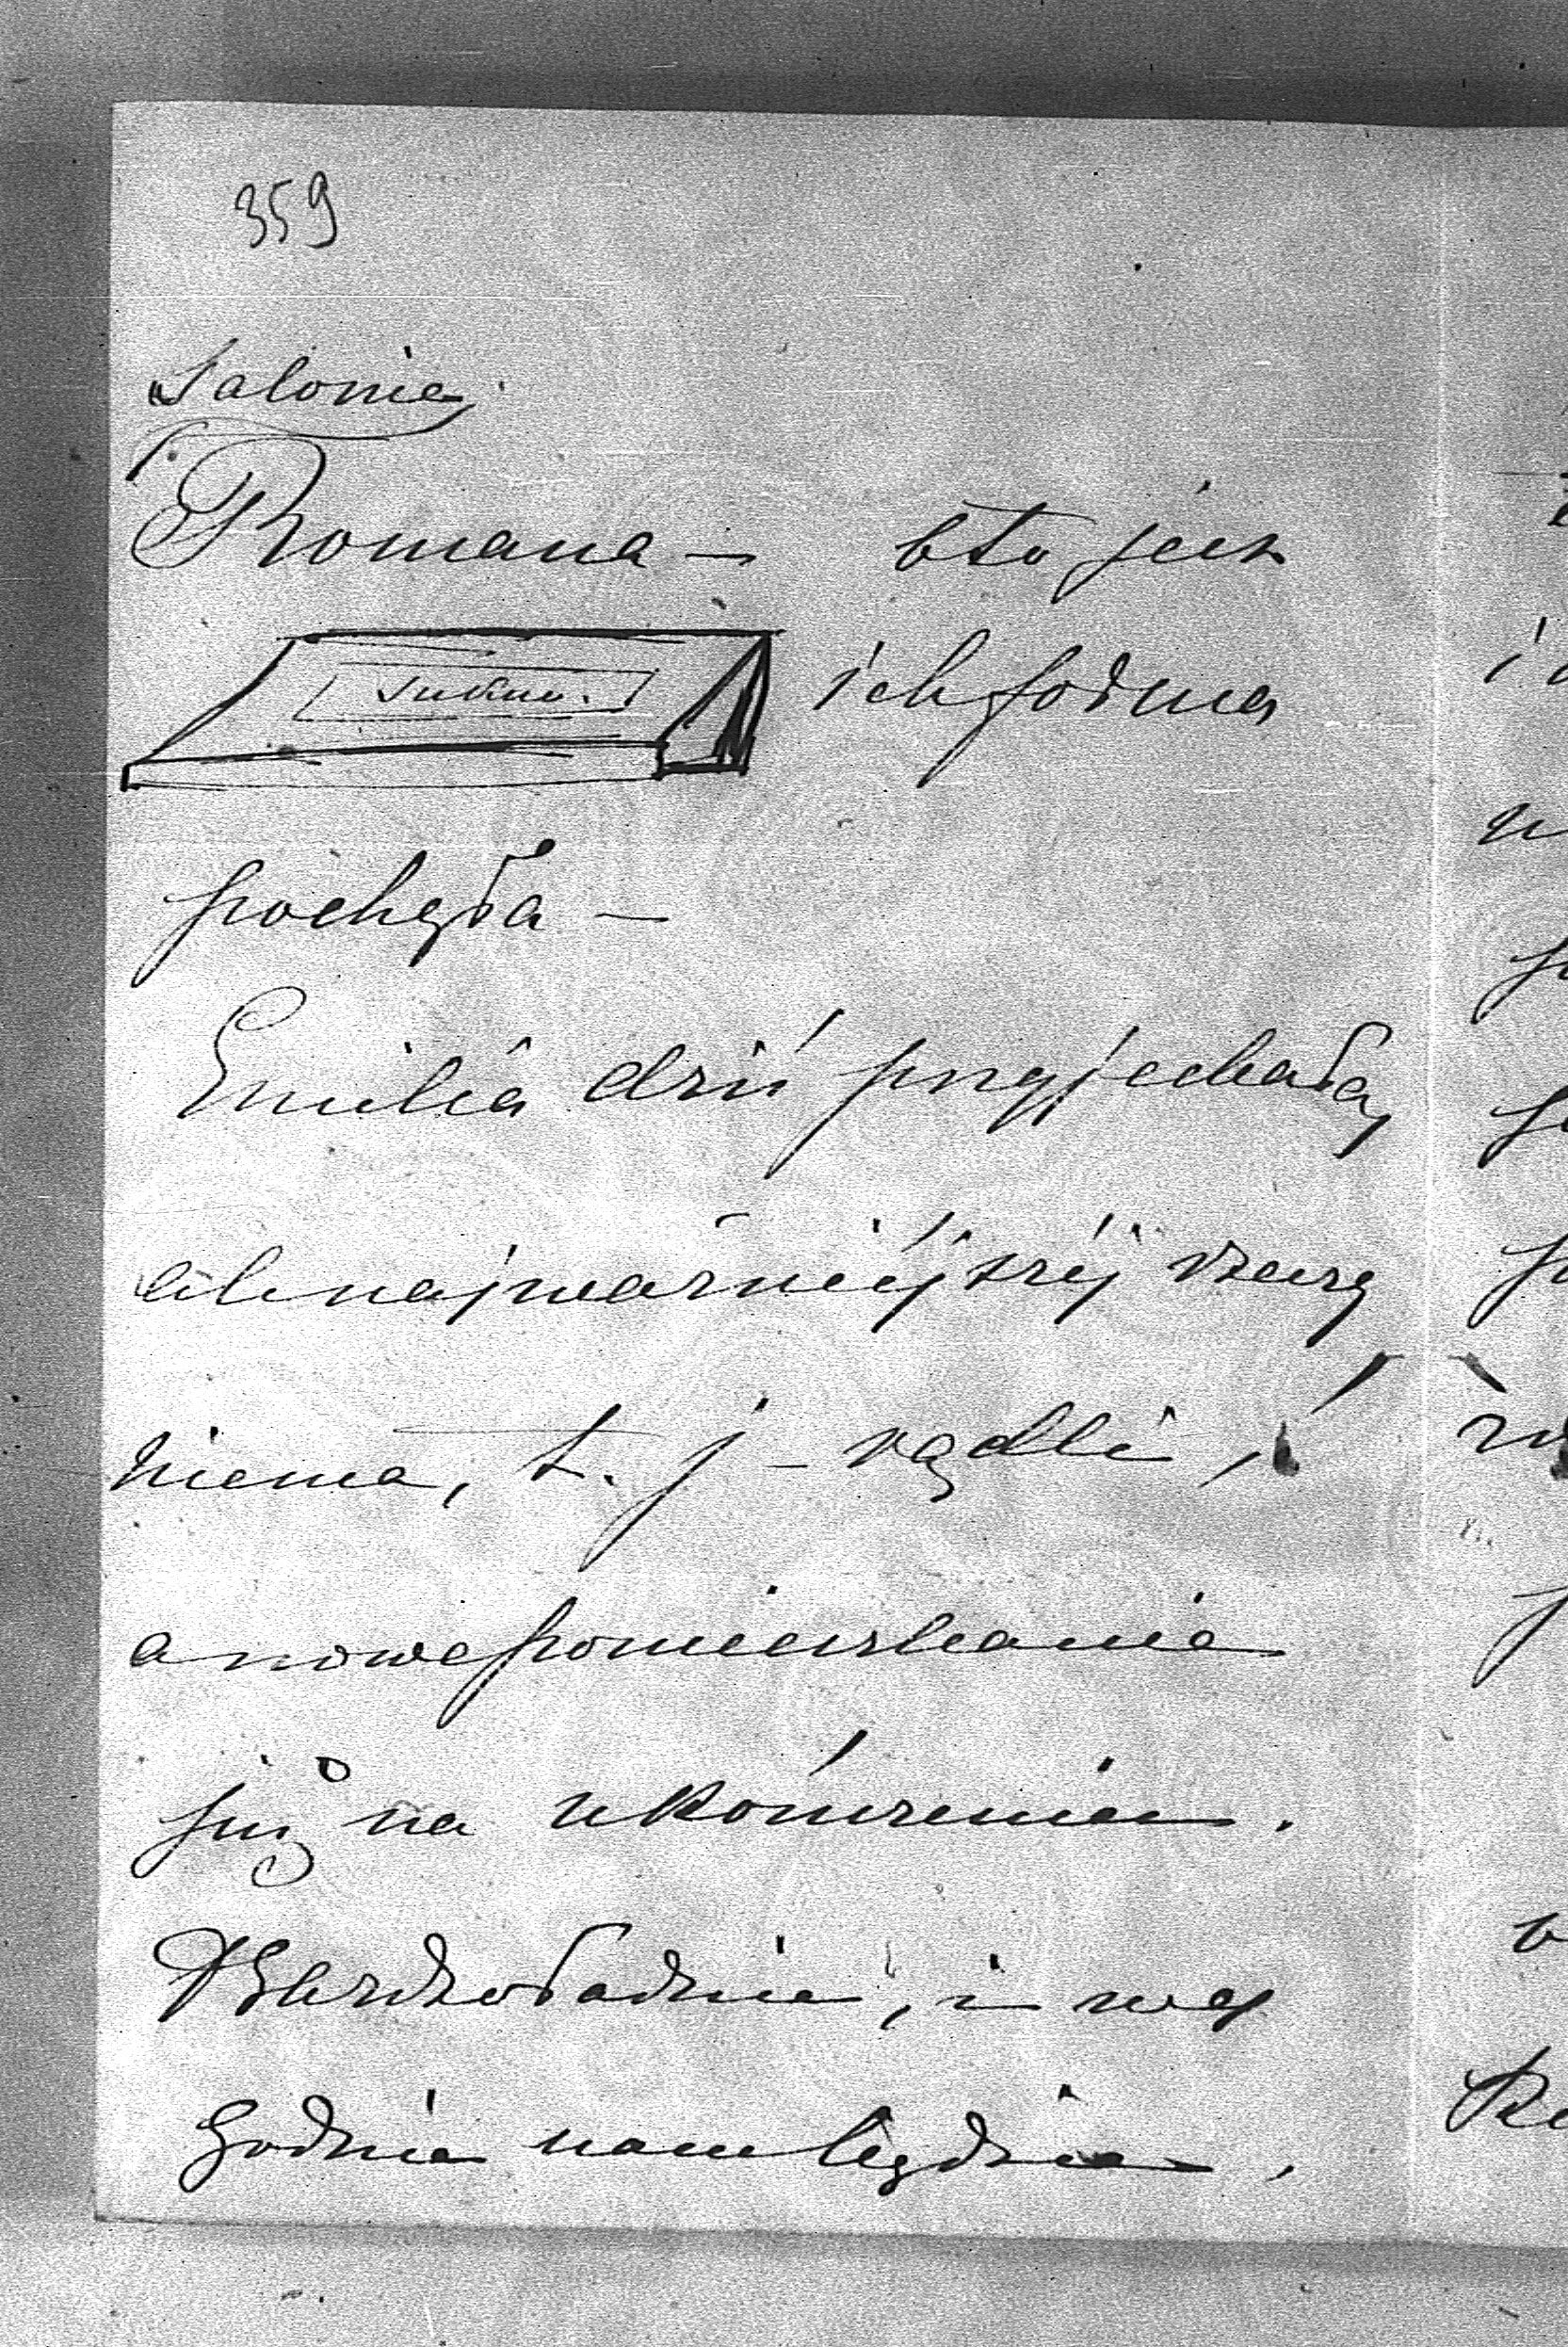 359
Salonie
Romana — oto jest
sukno. ich forma
pochyła —
Emilia dziś przyjechała,
ale najważniéjszéj rzeczy
niema, t. j - rądli,
a nowe pomieszkanie
już na ukończeniu.
Bardzo ładnie, i wy
godnie nam będzie.